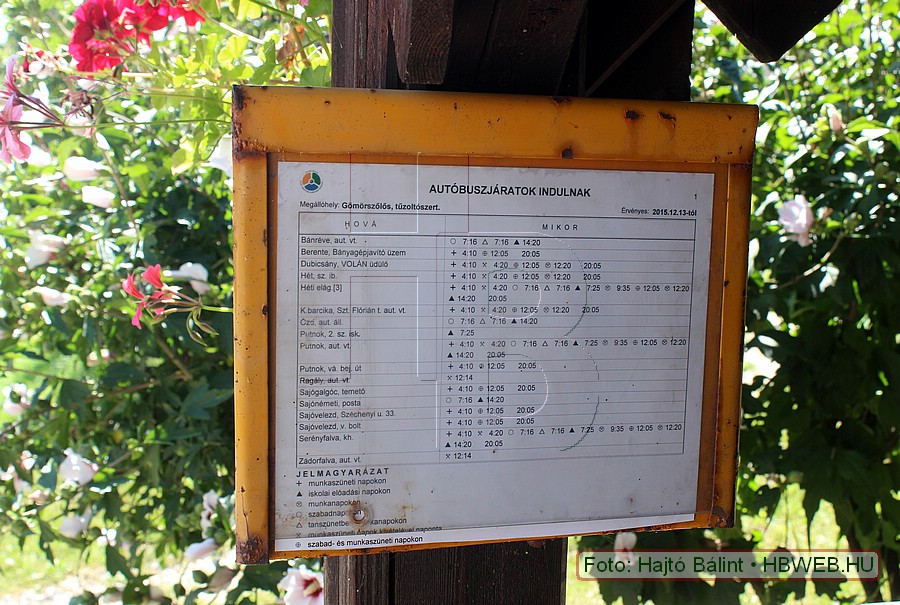 AUTÓBUSZJÁRATOK INDULNAK
1
Megállóhely: Gömörszőlős, tűzoltószert. Érvényes: 2015.12.13-tól
HOVÁ MIKOR
Bánréve, aut. vt. ○ 7:16 △ 7:16 ▲ 14:20
Berente, Bányagépjavító üzem + 4:10 ⊕ 12:05 20:05
Dubicsány, VOLÁN üdülő + 4:10 ⚒ 4:20 ⊕ 12:05 ⊗ 12:20 20:05
Hét, sz. ib. + 4:10 ⚒ 4:20 ⊕ 12:05 ⊗ 12:20 20:05
Héti elág [3] + 4:10 ⚒ 4:20 ○ 7:16 △ 7:16 ▲ 7:25 ⊗ 9:35 ⊕ 12:05 ⊗ 12:20
▲ 14:20 20:05
K.barcika, Szt. Flórián t. aut. vt. + 4:10 ⚒ 4:20 ⊕ 12:05 ⊗ 12:20 20:05
Ózd, aut. áll. ○ 7:16 △ 7:16 ▲ 14:20
Putnok, 2. sz. isk. ▲ 7:25
Putnok, aut. vt. + 4:10 ⚒ 4:20 ○ 7:16 △ 7:16 ▲ 7:25 ⊗ 9:35 ⊕ 12:05 ⊗ 12:20
▲ 14:20 20:05
Putnok, vá. bej. út + 4:10 ⊕ 12:05 20:05
Ragály, aut. vt. ⚒ 12:14
Sajógalgóc, temető + 4:10 ⊕ 12:05 20:05
Sajónémeti, posta ○ 7:16 ▲ 14:20
Sajóvelezd, Széchenyi u. 33. + 4:10 ⊕ 12:05 20:05
Sajóvelezd, v. bolt + 4:10 ⊕ 12:05 20:05
Serényfalva, kh. + 4:10 ⚒ 4:20 ○ 7:16 △ 7:16 ▲ 7:25 ⊗ 9:35 ⊕ 12:05 ⊗ 12:20
▲ 14:20 20:05
Zádorfalva, aut. vt. ⚒ 12:14
JELMAGYARÁZAT
+ munkaszüneti napokon
▲ iskolai előadási napokon
⊗ munkanapokon
○ szabadnap
△ tanszünetben munkanapokon
⚒ munkaszüneti napok kivételével naponta
⊕ szabad- és munkaszüneti napokon
Foto: Hajtó Bálint • HBWEB.HU